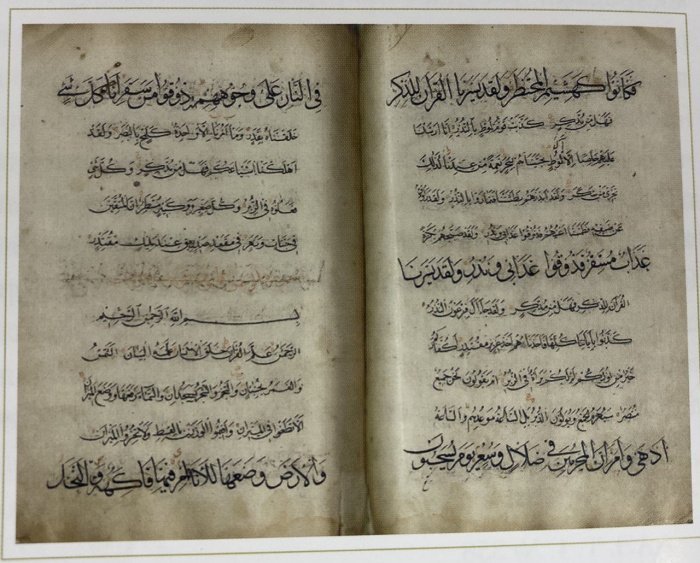 فكانوا كهشيم المحتظر ولقد يسرنا القرآن للذكر
فهل من مدكر كذبت قوم لوط بالنذر انا ارسلنا
عليهم حاصبا الا آل لوط نجيناهم بسحر نعمة من عندنا كذلك
نجزي من شكر ولقد انذرهم بطشتنا فتماروا بالنذر ولقد راودوه
عن ضيفه فطمسنا اعينهم فذوقوا عذابي ونذر ولقد صبحهم بكرة
عذاب مستقر فذوقوا عذابي ونذر ولقد يسرنا
القرآن للذكر فهل من مدكر ولقد جاء آل فرعون النذر
كذبوا بآياتنا كلها فاخذناهم اخذ عزيز مقتدر اكفاركم
خير من اولئكم ام لكم براءة في الزبر ام يقولون نحن جميع
منتصر سيهزم الجمع ويولون الدبر بل الساعة موعدهم والساعة
ادهى وامر ان المجرمين في ضلال وسعر يوم يسحبون
في النار على وجوههم ذوقوا مس سقر انا كل شيء
خلقناه بقدر وما امرنا الا واحدة كلمح بالبصر ولقد
اهلكنا اشياعكم فهل من مدكر وكل شيء
فعلوه في الزبر وكل صغير وكبير مستطر ان المتقين
في جنات ونهر في مقعد صدق عند مليك مقتدر
بسم الله الرحمن الرحيم
الرحمن علم القرآن خلق الانسان علمه البيان الشمس
والقمر بحسبان والنجم والشجر يسجدان والسماء رفعها ووضع الميزان
الا تطغوا في الميزان واقيموا الوزن بالقسط ولا تخسروا الميزان
والارض وضعها للانام فيها فاكهة والنخل